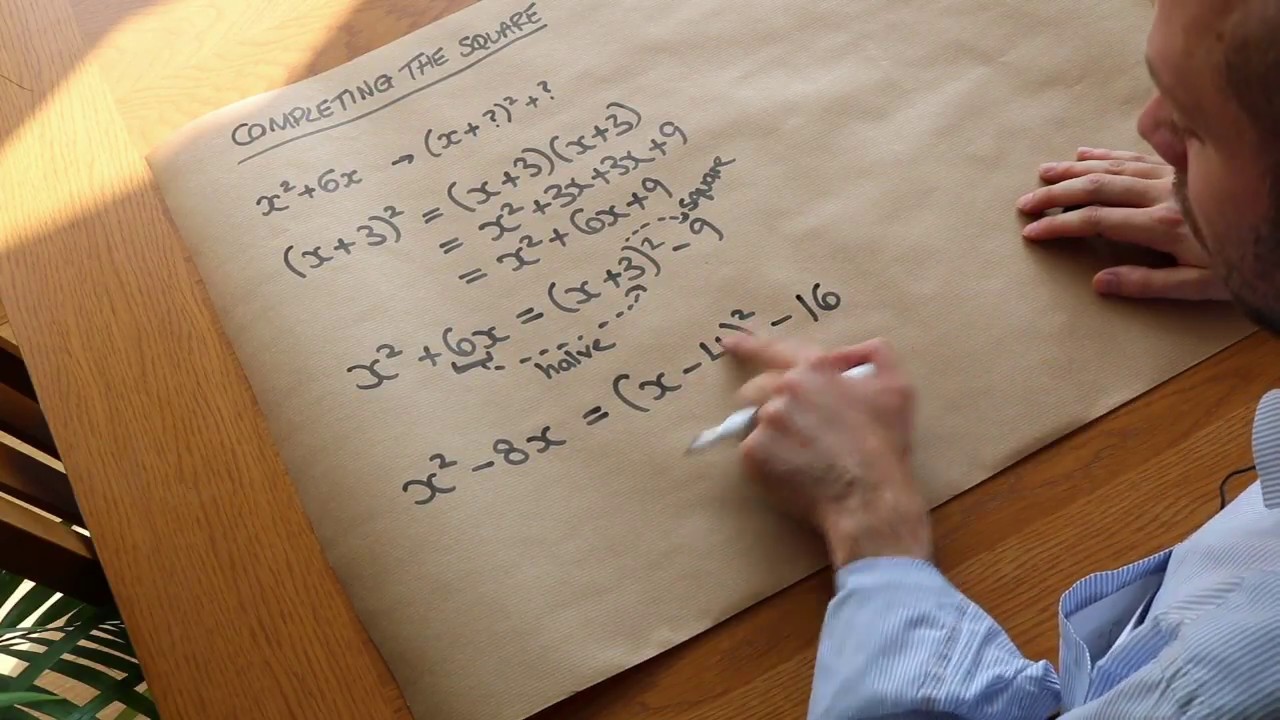 COMPLETING THE SQUARE
x² + 6x → (x + ?)² + ?
(x + 3)² = (x + 3)(x + 3)
= x² + 3x + 3x + 9
= x² + 6x + 9
square
x² + 6x = (x + 3)² - 9
halve
x² - 8x = (x - 4)² - 16